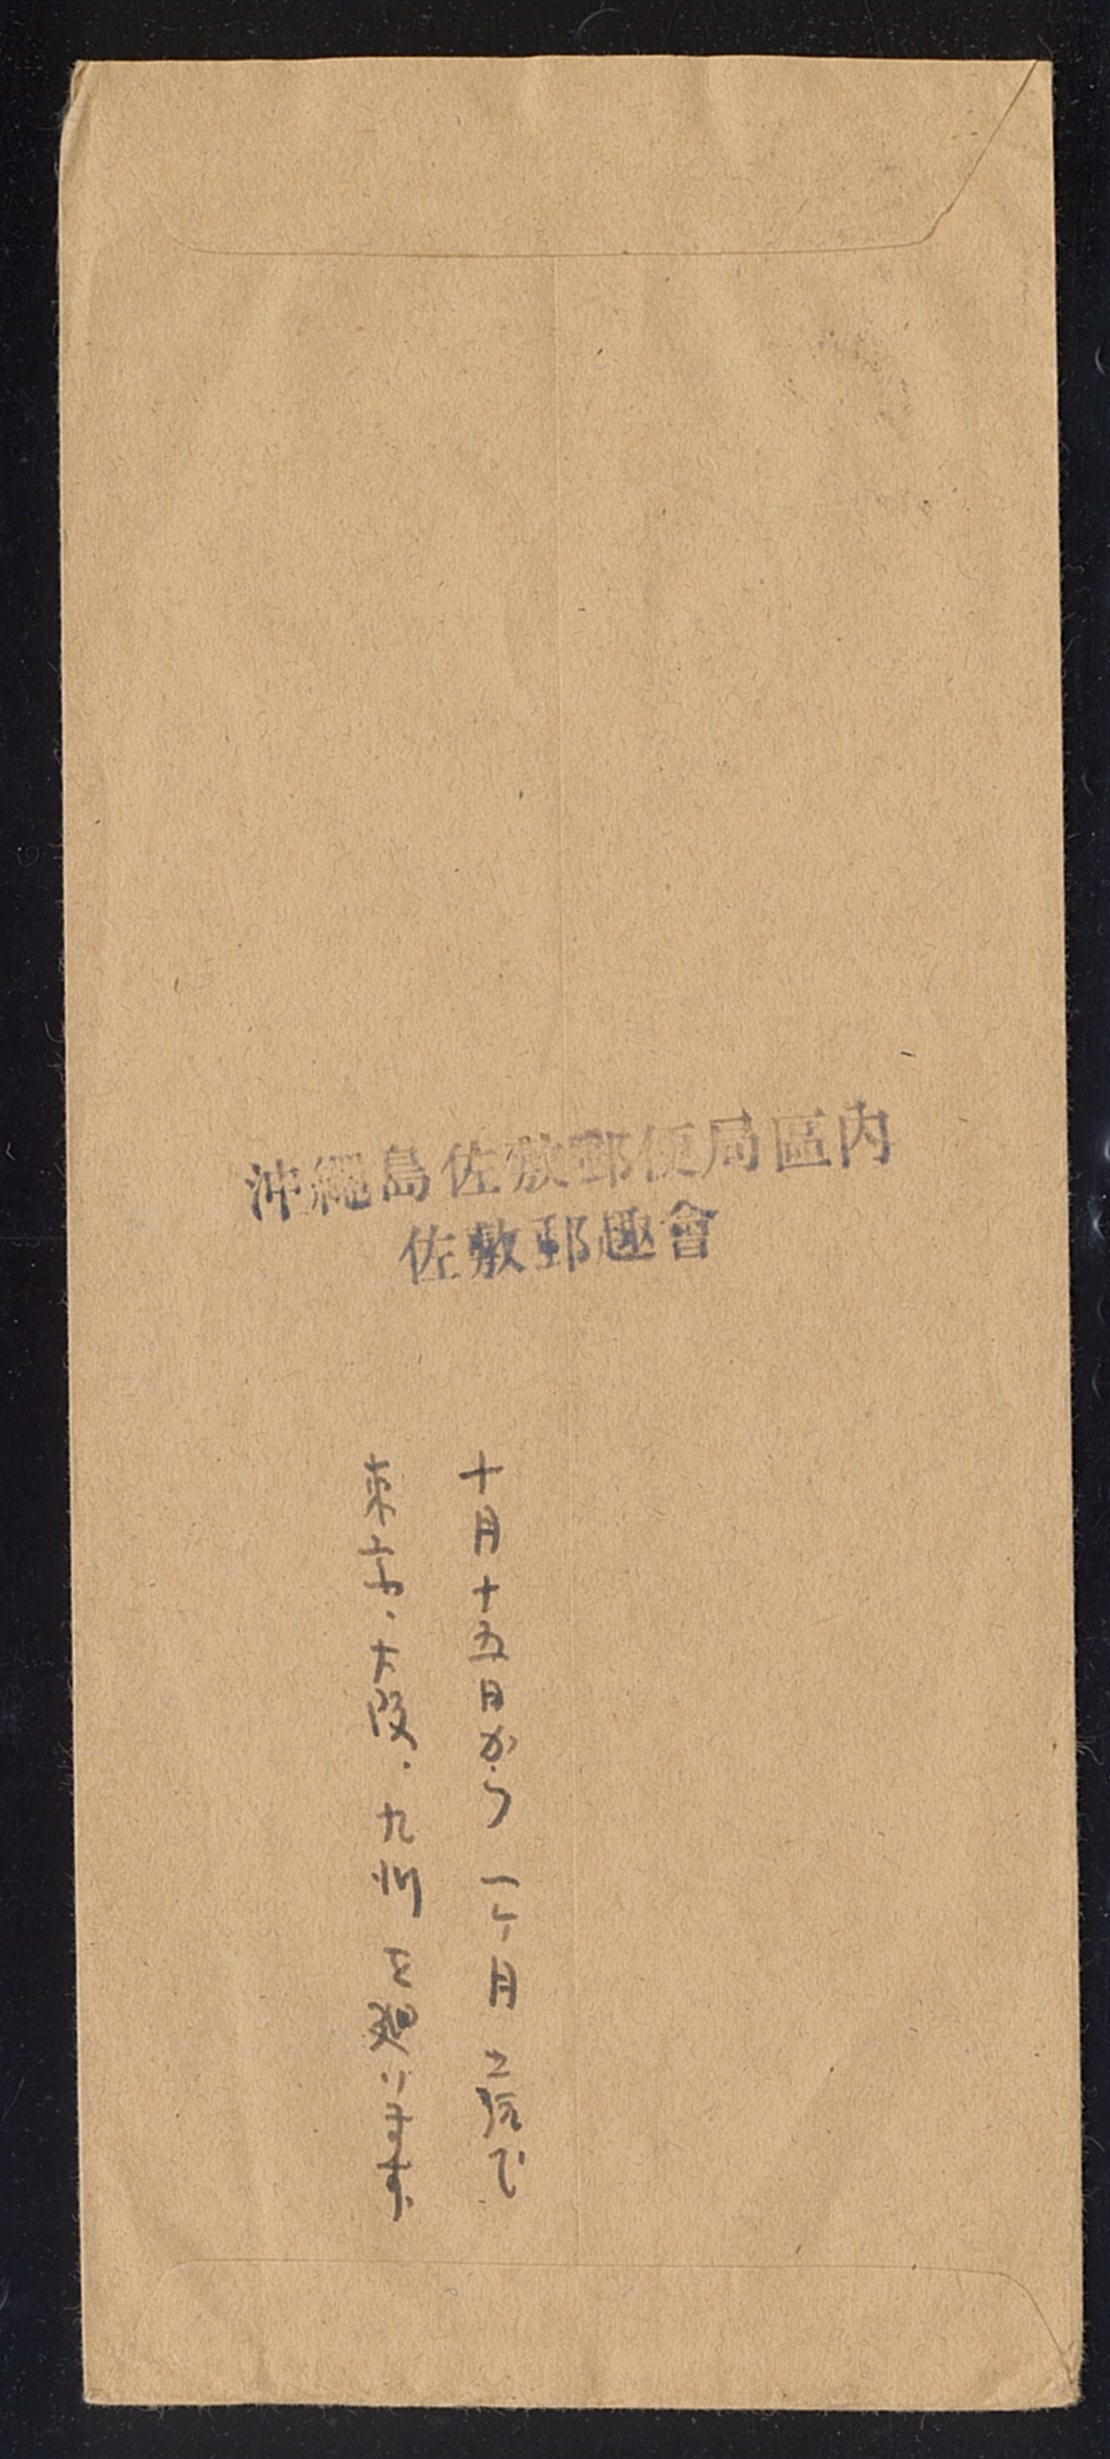 沖繩島佐敷郵便局區内
佐敷郵趣會
十月十五日から 一ヶ月 で
東京、大阪、九州を廻ります